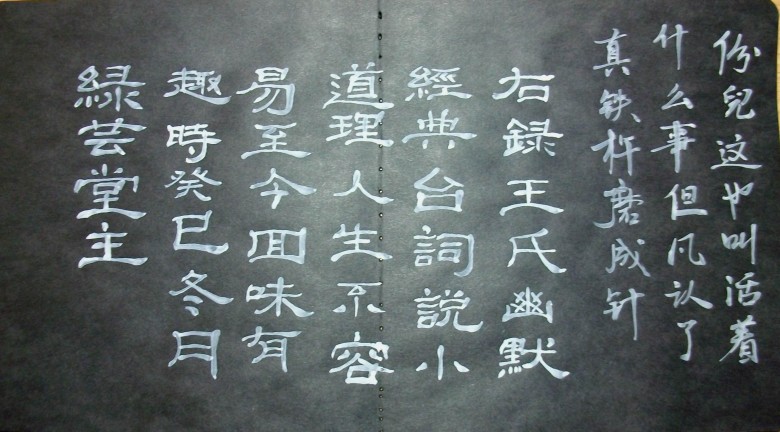 份兒这也叫活着
什么事但凡认了
真铁杵磨成针
右録王氏幽默
經典台詞説小
道理人生不容
易至今回味有
趣時癸巳冬月
緑芸堂主